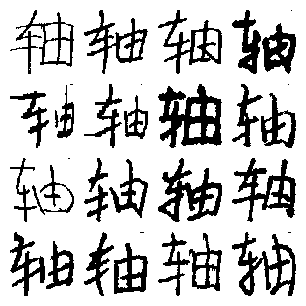 轴轴轴轴
轴轴轴轴
轴轴轴轴
轴轴轴轴